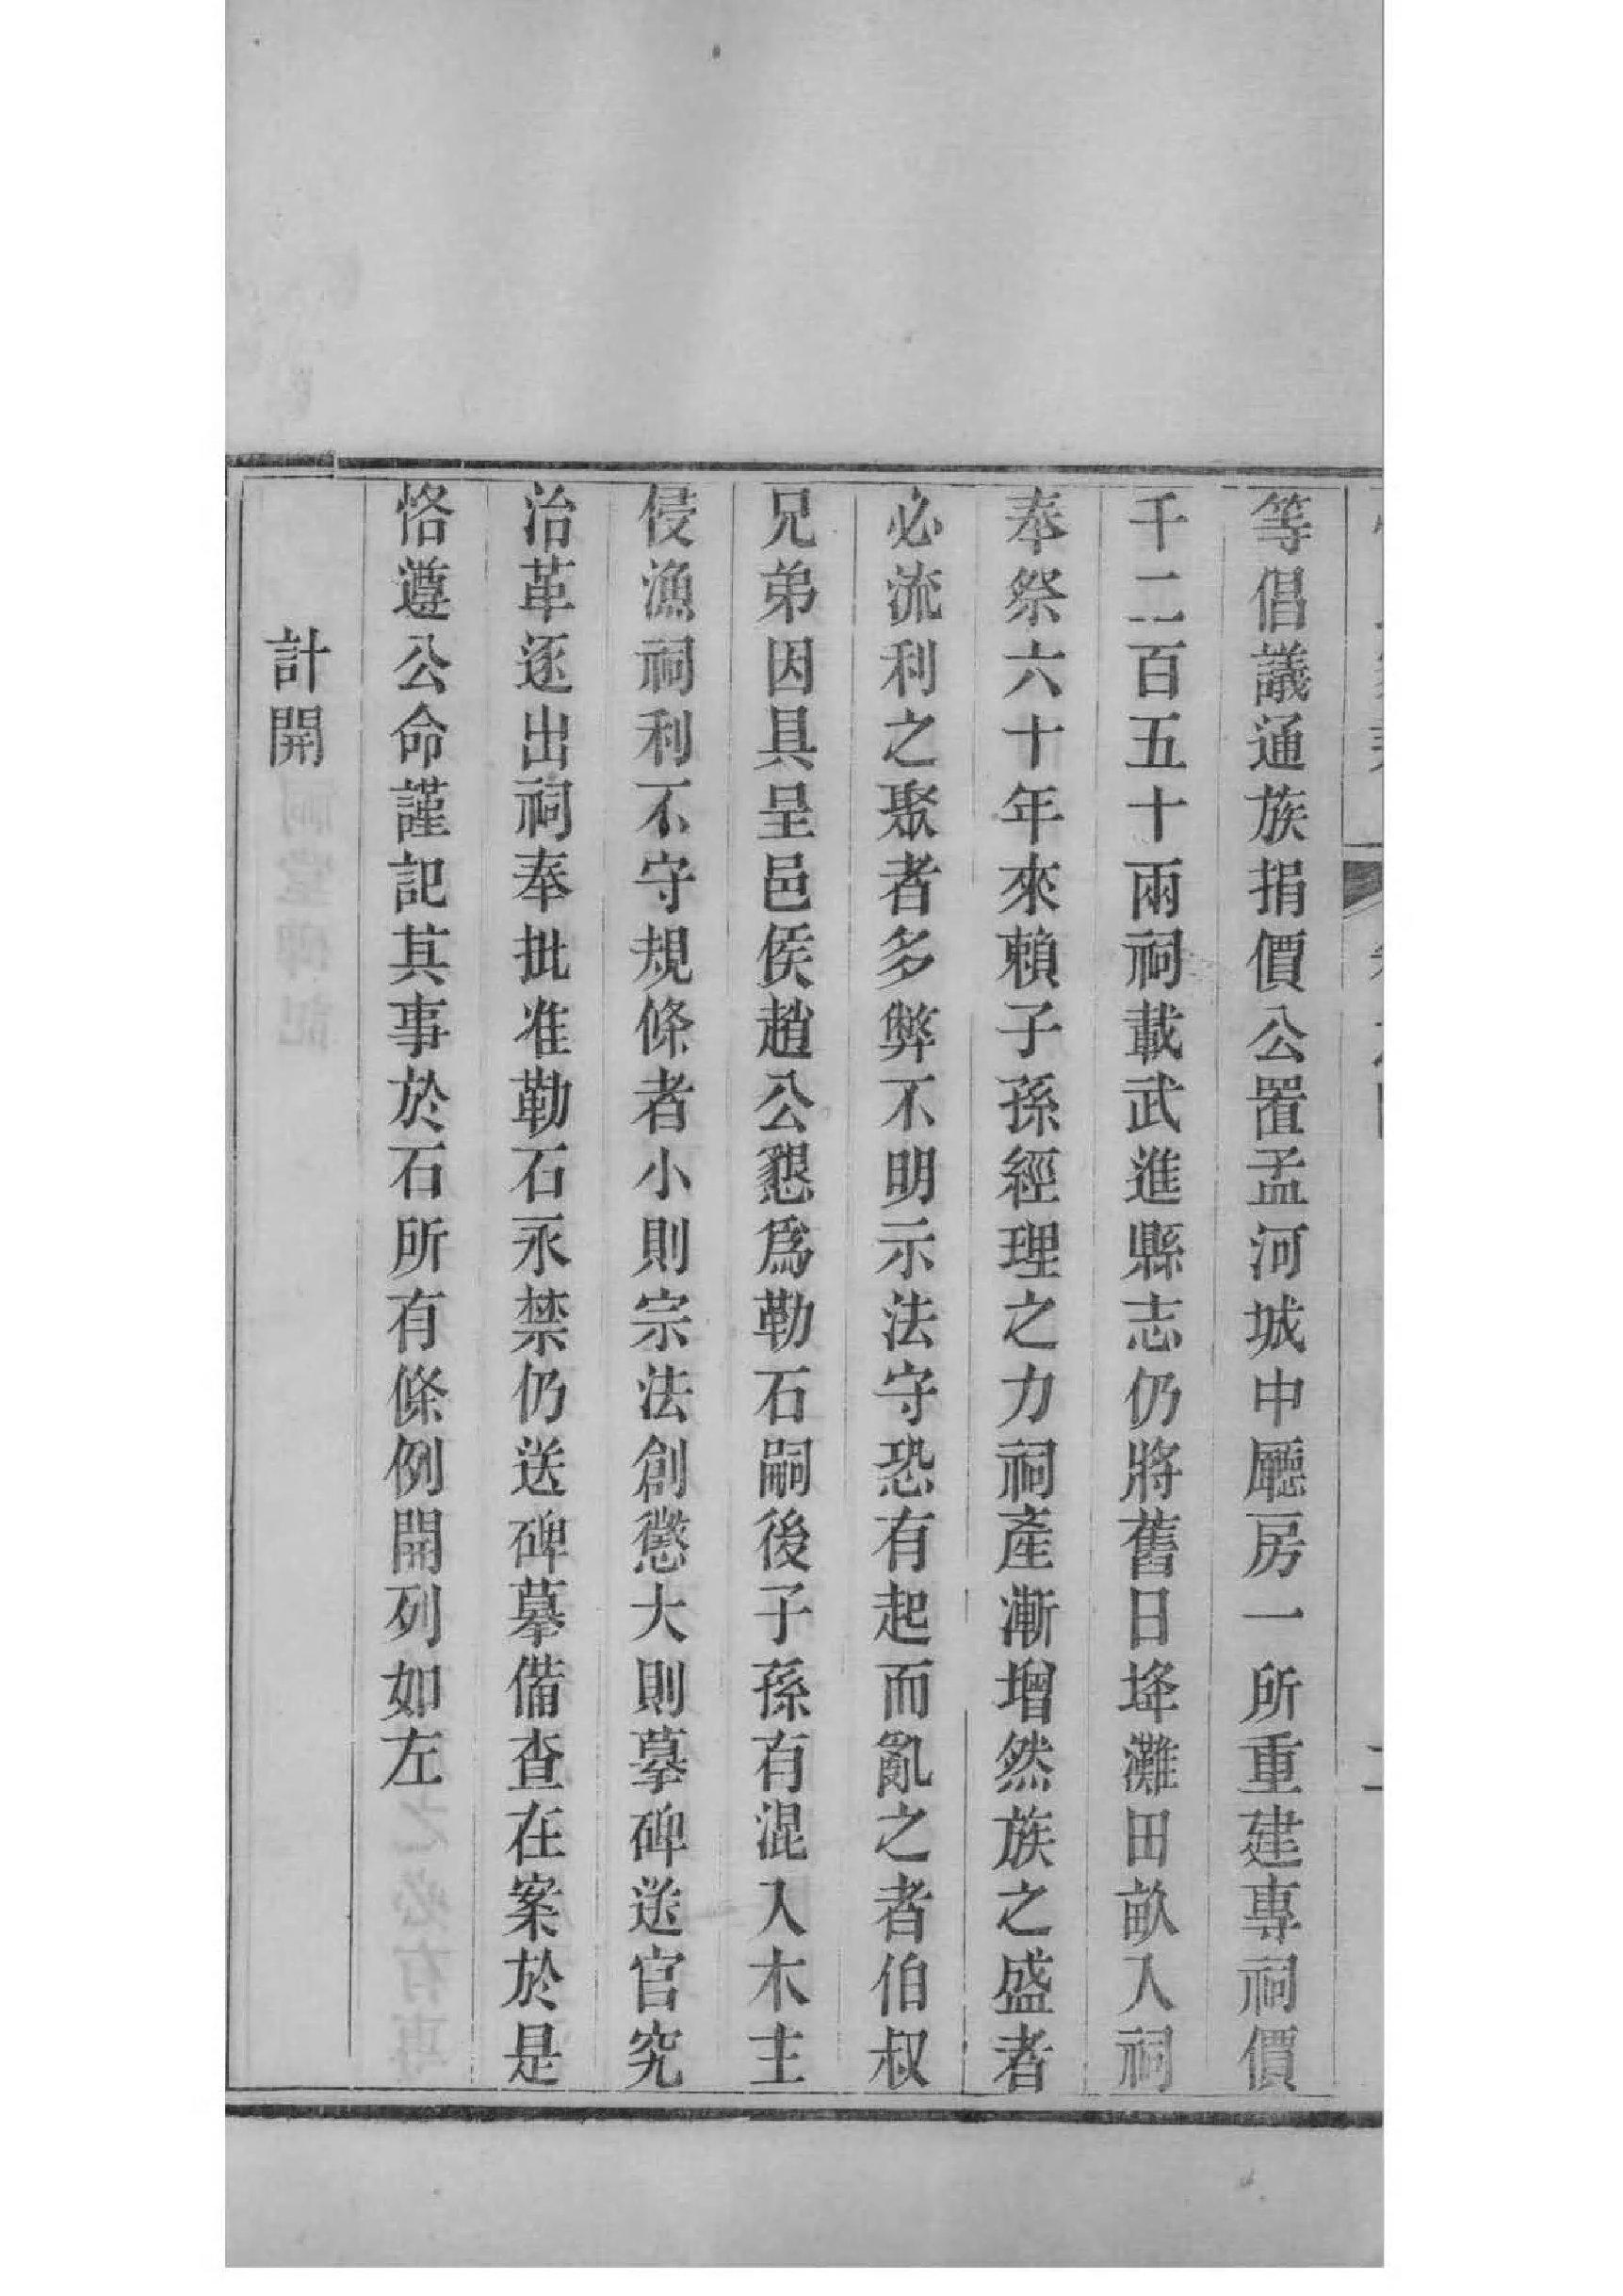 等倡議通族捐價公置孟河城中廳房一所重建專祠價
千二百五十兩祠載武進縣志仍將舊日埄灘田畝入祠
奉祭六十年來賴子孫經理之力祠產漸增然族之盛者
必流利之聚者多弊不明示法守恐有起而亂之者伯叔
兄弟因具呈邑侯趙公懇爲勒石嗣後子孫有混入木主
侵漁祠利不守規條者小則宗法創懲大則摹碑送官究
治革逐出祠奉批准勒石永禁仍送碑摹備查在案於是
恪遵公命謹記其事於石所有條例開列如左
計開